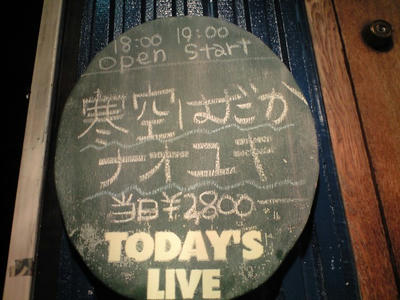 18:00 19:00
open Start
寒空はだか
ナオユキ
当日¥2800
TODAY'S
LIVE